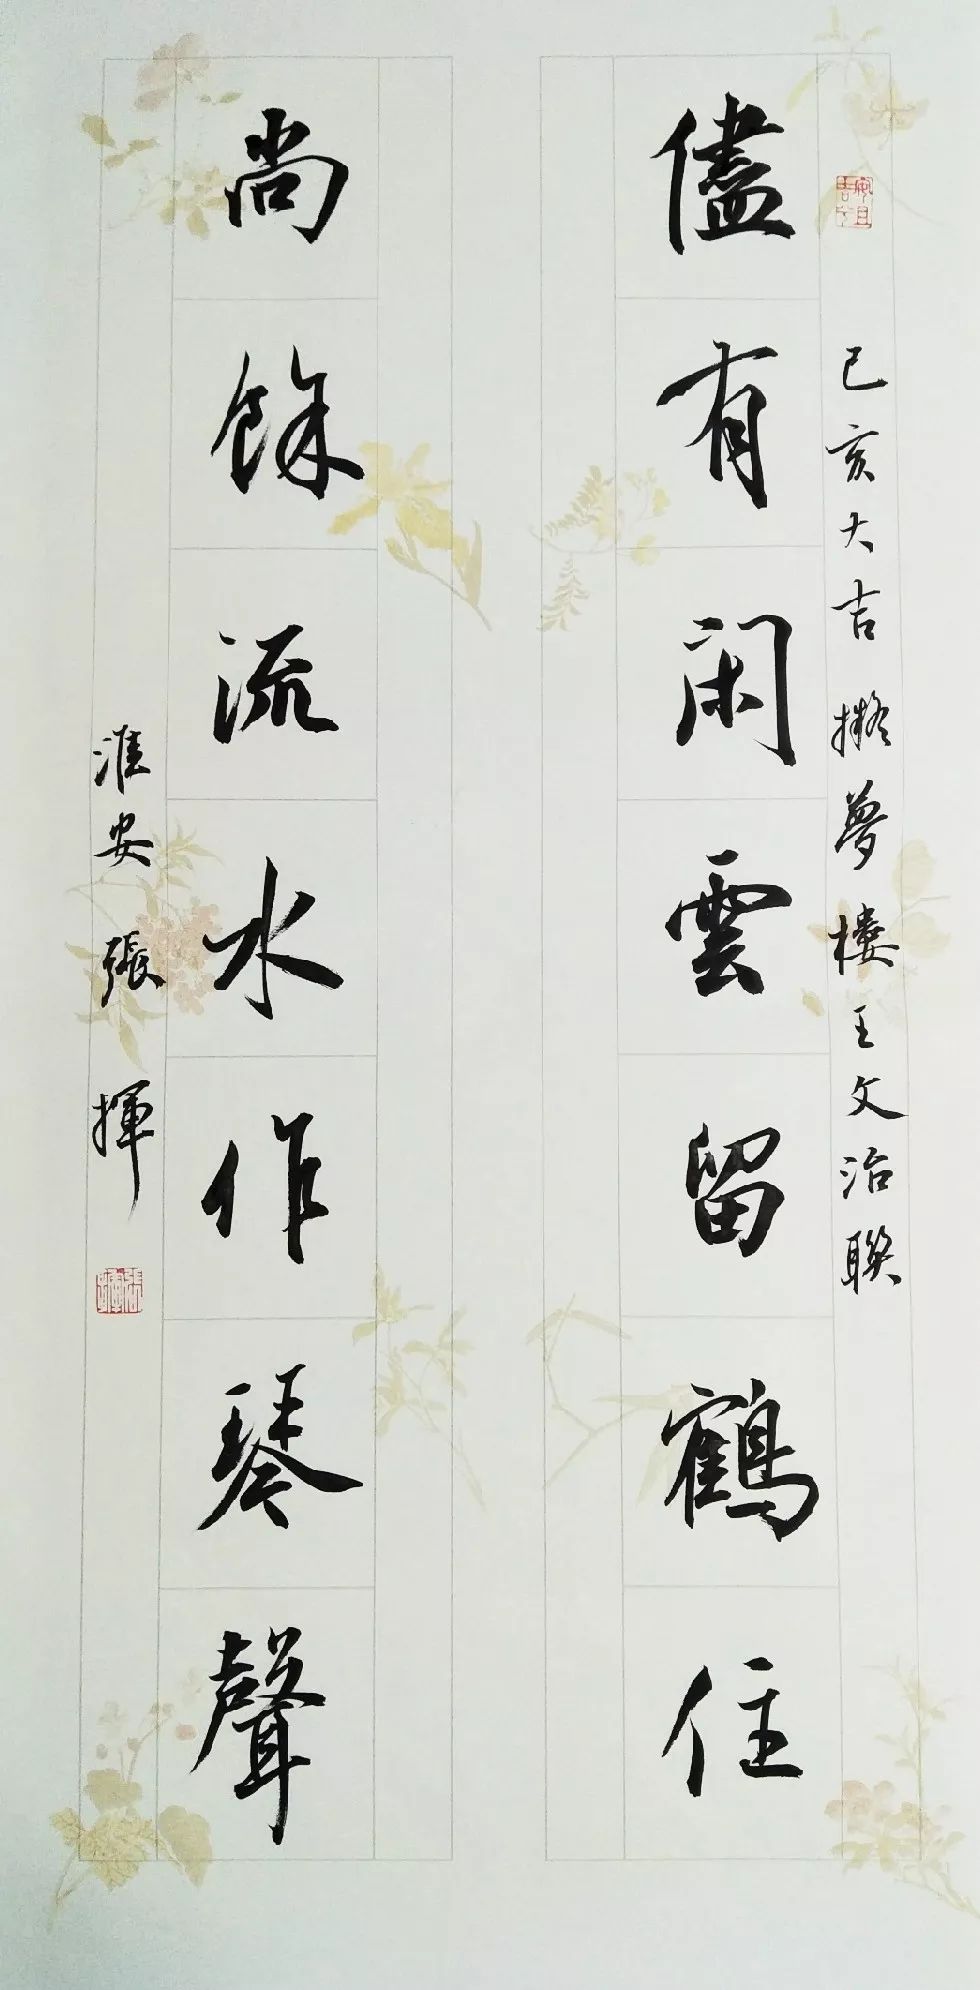 儘有閑雲留鶴住
己亥大吉 擬夢樓王文治聯
尚餘流水作琴聲
淮安張揮